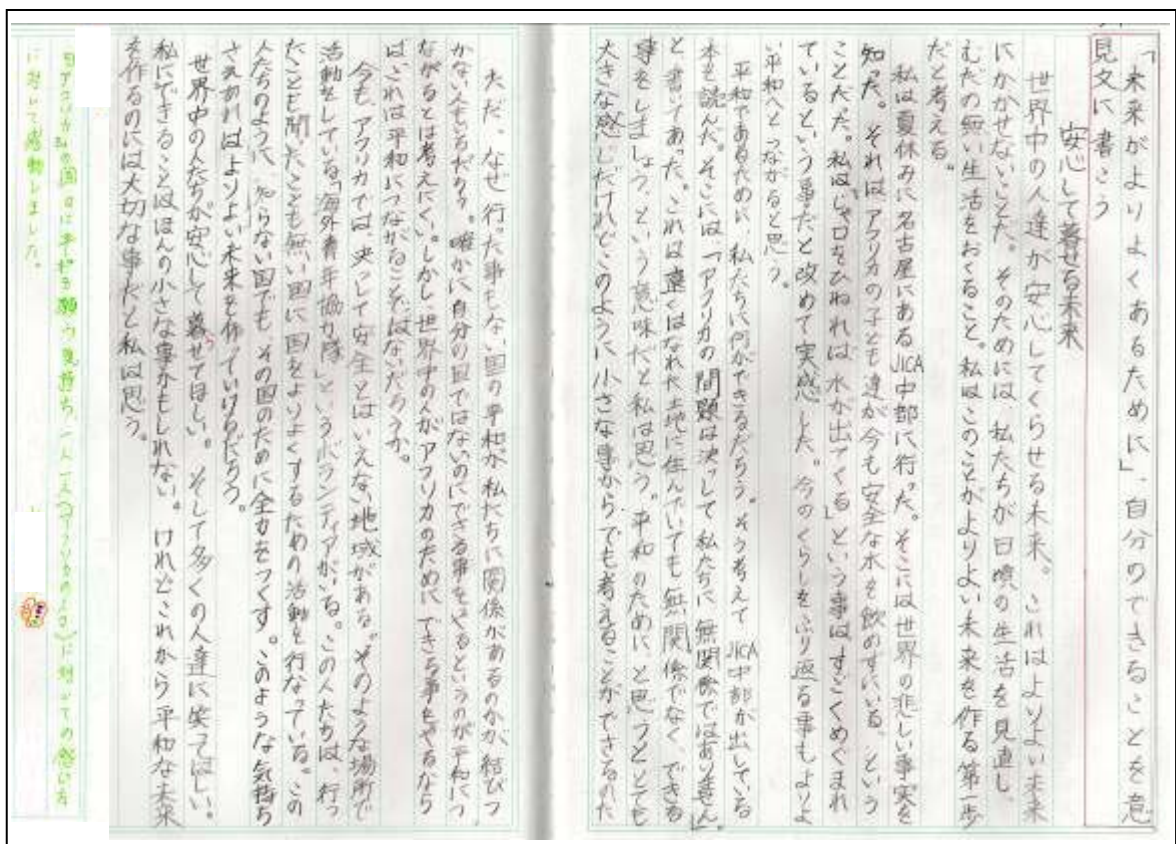 「未来がよりよくあるために」、自分のできることを意
見文に書こう
安心して暮せる未来
世界中の人達が安心してくらせる未来。これはよりよい未来
にかかせないことだ。そのためには、私たちが日頃の生活を見直し、
むだの無い生活をおくること。私はこのことがよりよい未来を作る第一歩
だと考える。
私は夏休みに名古屋にあるJICA中部に行った。そこには世界の悲しい事実を
知った。それはアフリカの子ども達が今も安全な水を飲めずにいる、という
ことだた。私は、「じゃ口をひねれば水が出てくる」という事はすごくめぐまれ
ているという事だと改めて実感した。今のくらしをふり返る事もよりよ
い平和へとつながると思う。
平和であるために、私たちに何ができるだろう。そう考えてJICA中部が出している
本も読んだ。そこには「アフリカの問題は決して私たちに無関係ではありません」
と書いてあった。これは遠くはなれた土地に住んでいても無関係でなく、できる
事をしましょう、という意味だと私は思う。平和のために、と思うととても
大きな感じだけれどこのように小さな事からでも考えることができるのだ
ただ、なぜ行った事もない国の平和が私たちに関係があるのかが結びつ
かない人もいるだろう。確かに自分の国ではないのにできる事をやるというのが平和につ
ながるとは考えにくい。しかし世界中の人がアフリカのために、できる事をやるなら
ば、これは平和につながることではないだろうか。
今も、アフリカでは決っして安全とはいえない地域がある。そのような場所で
活動をしている「海外青年協力隊」というボランティアがいる。この人たちは、行っ
たことも聞いたことも無い国に国をよりよくするための活動を行なっている。この
人たちのように知らない国でも、その国のために全力をつくす。このような気持ち
さえあればよりよい未来を作っていけるだろう。
世界中の人たちが安心して暮せてほしい。そして多くの人達に笑ってほしい。
私にできることはほんの小さな事かもしれない。けれどこれから平和な未来
を作るのには大切な事だと私は思う。
に対して感動しました。